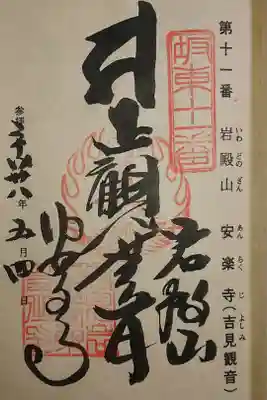 第十一番 岩殿山 安楽寺(吉見観音)
いわ どの ざん あん らく じ よしみ
坂東十一番
岩殿山
観世音
参拝 平成廿八年 五月 四日